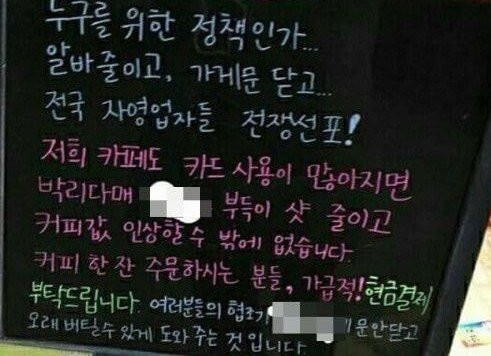 누구를 위한 정책인가...
알바줄이고, 가게문 닫고...
전국 자영업자들 전쟁선포!
저희 카페도 카드 사용이 많아지면
박리다매 부득이 샷 줄이고
커피값 인상할 수 밖에 없습니다.
커피 한 잔 주문하시는 분들, 가급적! 현금결제
부탁드립니다. 여러분들의 협조가 문안닫고
오래 버틸수 있게 도와 주는 것 입니다.